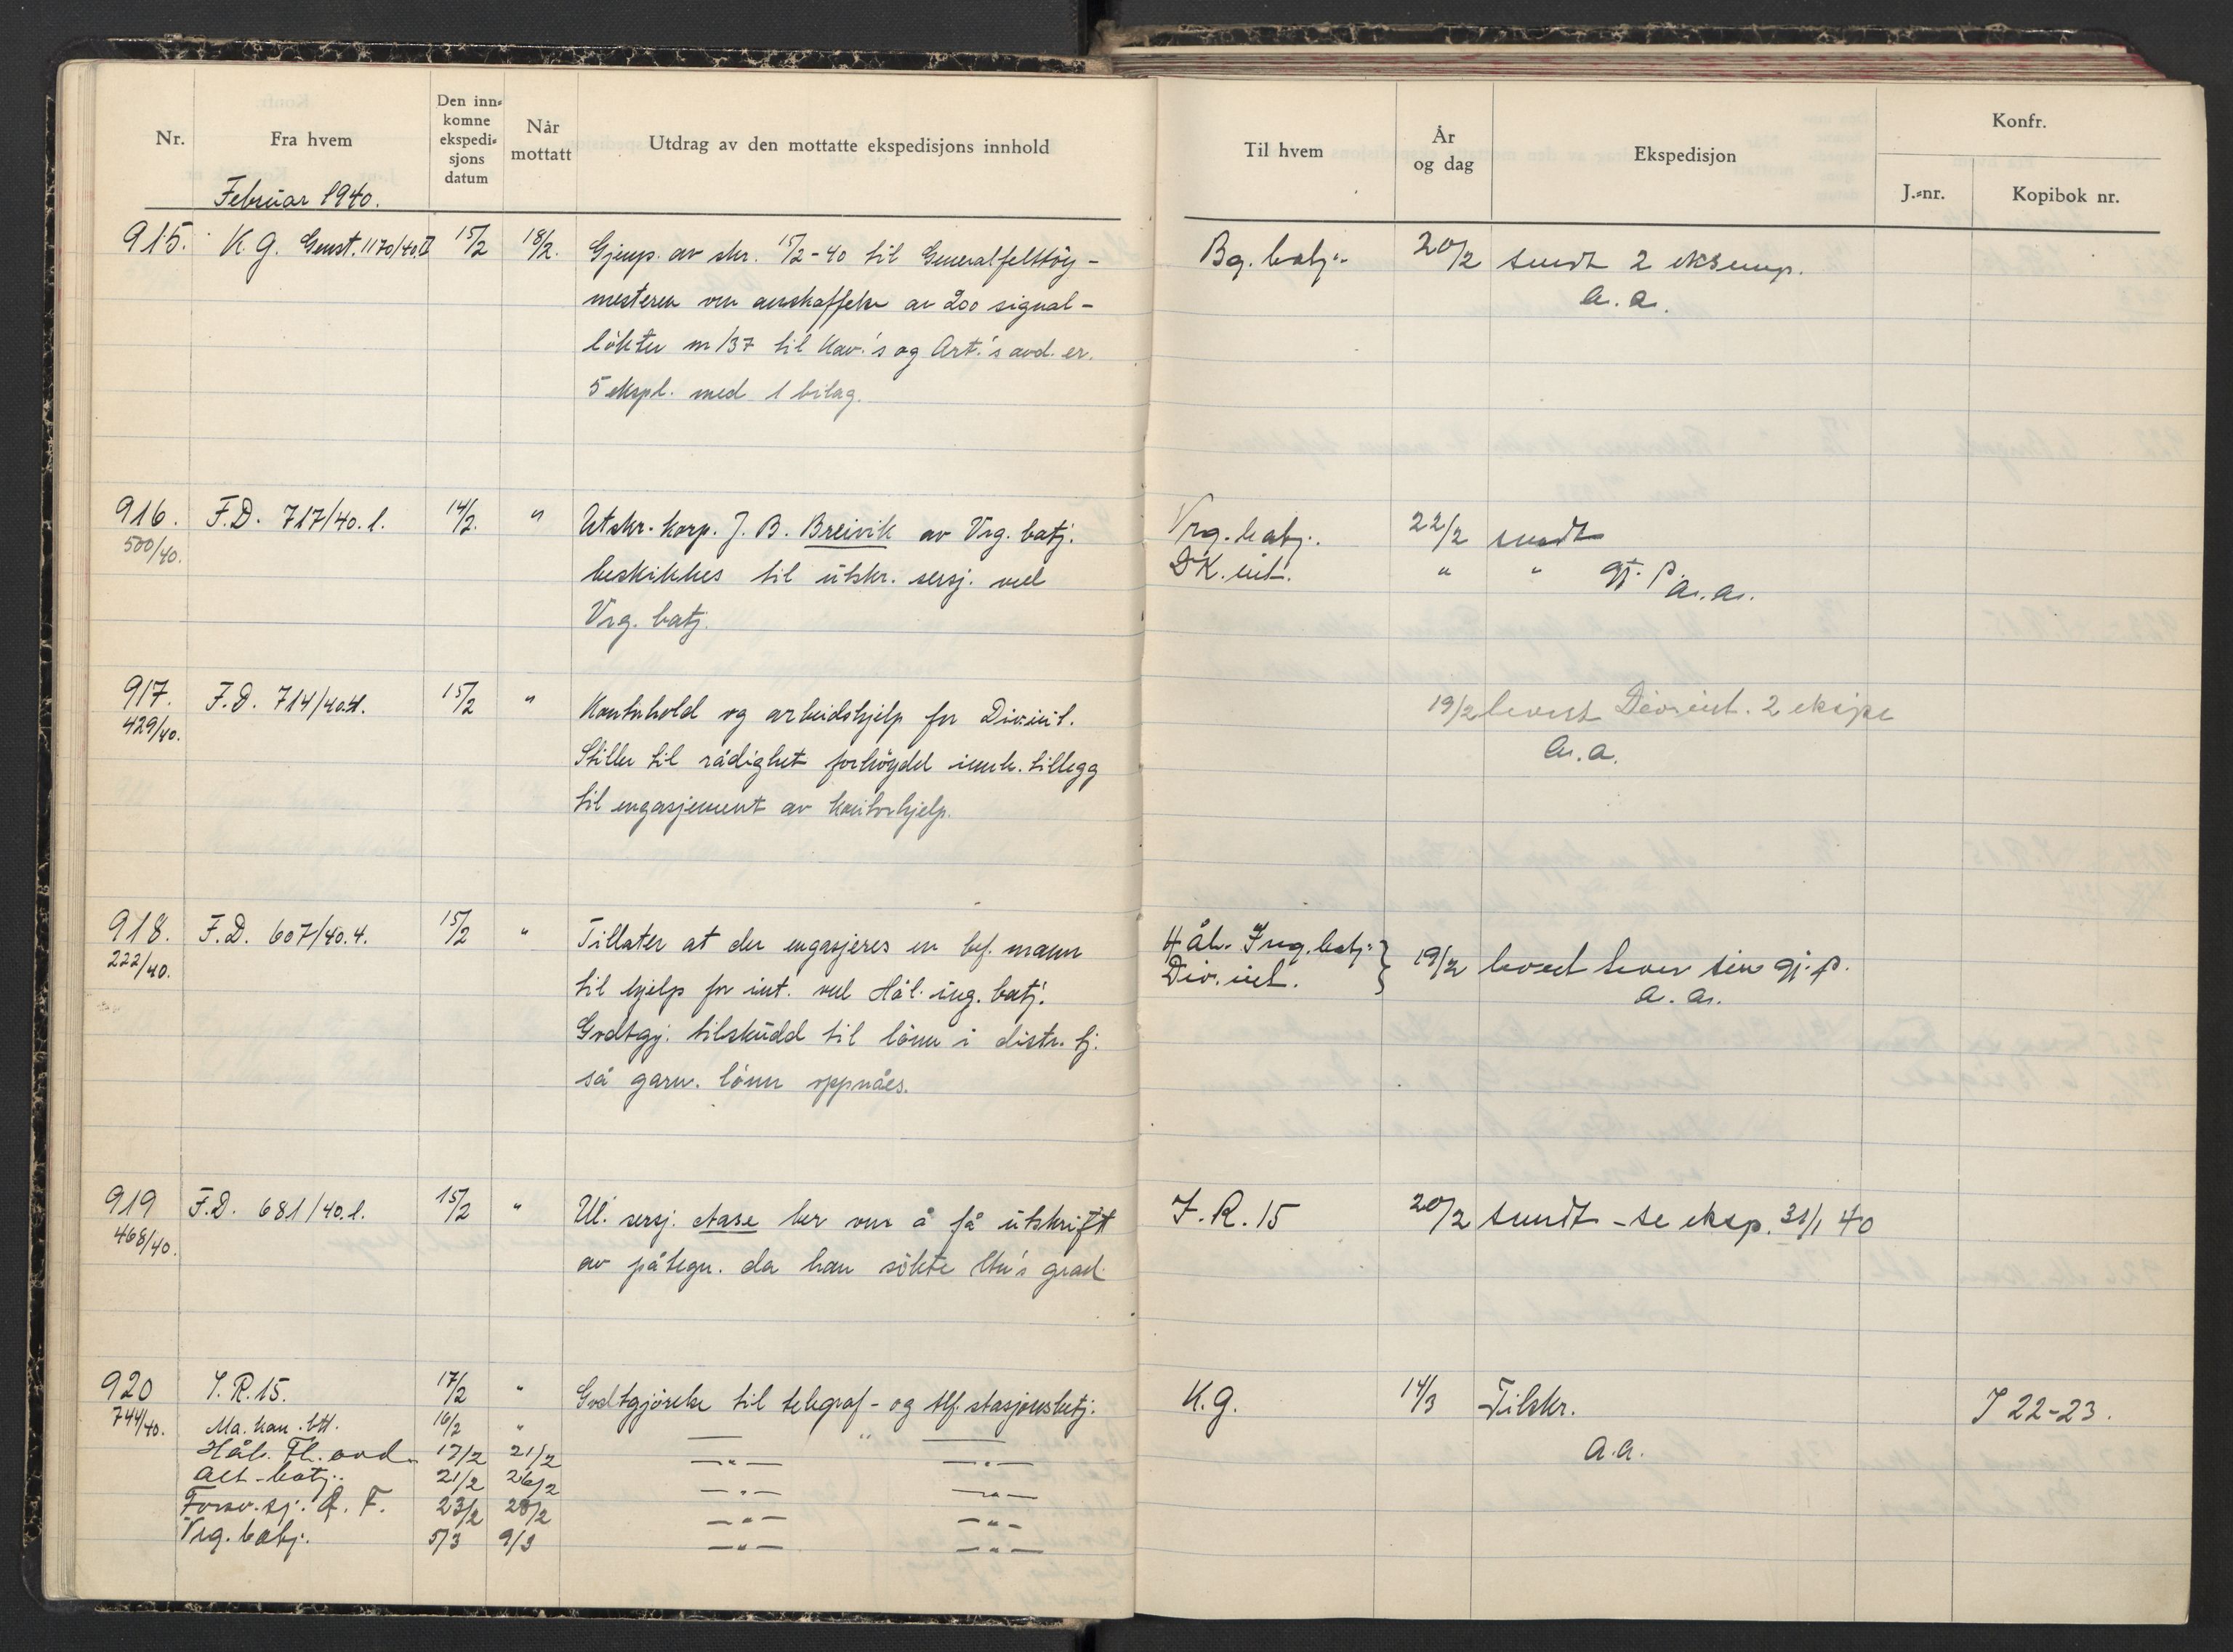 Nr.
Fra hvem
Den inn-
komne
ekspedi-
sjons
datum
Når
mottatt
Utdrag av den mottatte ekspedisjons innhold
Februar 1940.
915. K.G. Genst. 1170/40.II 15/2 18/2. Gjenp. av skr. 15/2-40 til Generalfelttöy-
mesteren om anskaffelse av 200 signal-
lökter m/37 til Kav.'s og Art.'s avd.er.
5 ekspl. med 1 bilag.
916. F.D. 717/40.1. 14/2. " Utskr. korp. J. B. Breivik av Vrg. batj.
500/40. beskikkes til utskr. sersj. ved
Vrg. batj.
917. F.D. 714/40.4. 15/2 " Kontorhold og arbeidshjelp for Div.int.
429/40. Stiller til rådighet forhöydet tillegg
til engasjement av kontorhjelp.
918. F.D. 607/40.4. 15/2 " Tillater at der engasjeres en bef. mann
222/40. til hjelp for int. ved Hål. ing. batj.
Godtgj. tilskudd til lönn i distr. tj.
så garn. lönn oppnåes.
919 F.D. 681/40.1. 15/2 " Ul. sersj. Aase ber om å få utskrift
468/40. av påtegn. da han sökte ltn's grad.
920 I.R.15. 17/2 " Godtgjörelse til telegraf- og tlf. stasjonsbetj.
744/40. Ma. kan. btl. 16/2 " — " —
Hål. Fl. avd. 17/2 21/2 — " — — " —
Alt. batj. 21/2 26/2 — " — — " —
Forsv. sj. Ø. F. 23/2 28/2 — " — — " —
Vrg. batj. 5/3 9/3 — " — — " —
Til hvem
År
og dag
Ekspedisjon
Konfr.
J.-nr.
Kopibok nr.
Bg. batj. 20/2 sendt 2 eksemp.
a.a.
Vrg. batj. 22/2 sendt
DK. int. " " gj. p.
a.a.
19/2 levert Div.int. 2 ekspl
a.a.
Hål. Ing. batj. } 19/2 levert hver sin gj. p.
Div. int.
a.a.
I.R. 15 20/2 sendt - se eksp. 31/1 40
K.G. 14/3 Tilskr. I 22-23.
a.a.